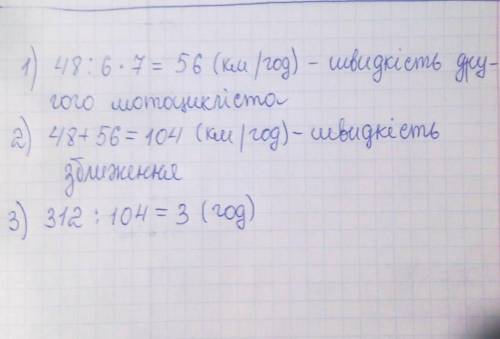 1) 48 : 6 · 7 = 56 (км/год) - швидкість дру-
гого мотоцикліста
2) 48 + 56 = 104 (км/год) - швидкість
зближення
3) 312 : 104 = 3 (год)